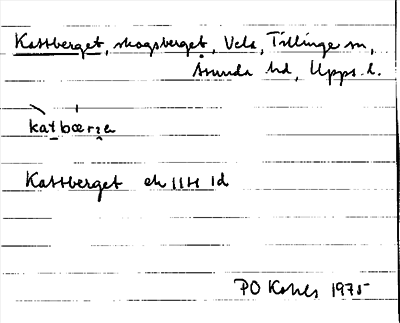 Kattberget, skogsberget, Vela, Tillinge sn,
Åsunda hd, Upps. l.
katbærʒe
Kattberget ek 11H 1d
PO 1975